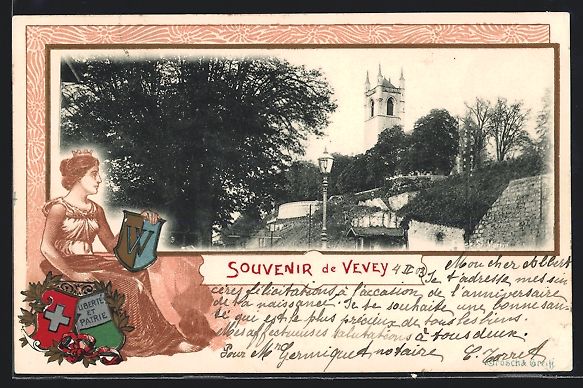 SOUVENIR de VEVEY 4 II 03
Mon cher Albert
Je t'adresse mes sin
cères félicitations à l'occasion de l'anniversaire
de ta naissance. Je te souhaite une bonne san-
té qui est le plus précieux de tous les biens.
Mes affectueuses salutations à tous deux.
Pour Mr Germiquet notaire
W
LIBERTÉ
ET
PATRIE